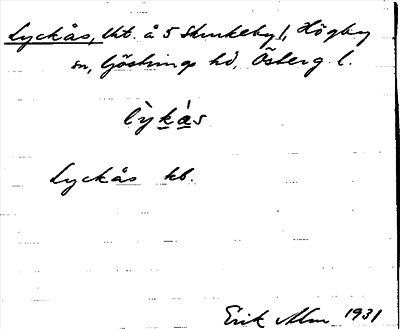 Lyckås, Uht. å 5 Skurkeby!, Högby
sn, Göstrings hd, Österg. l.
lỳkås
Lyckås kb.
Erik Alm 1931